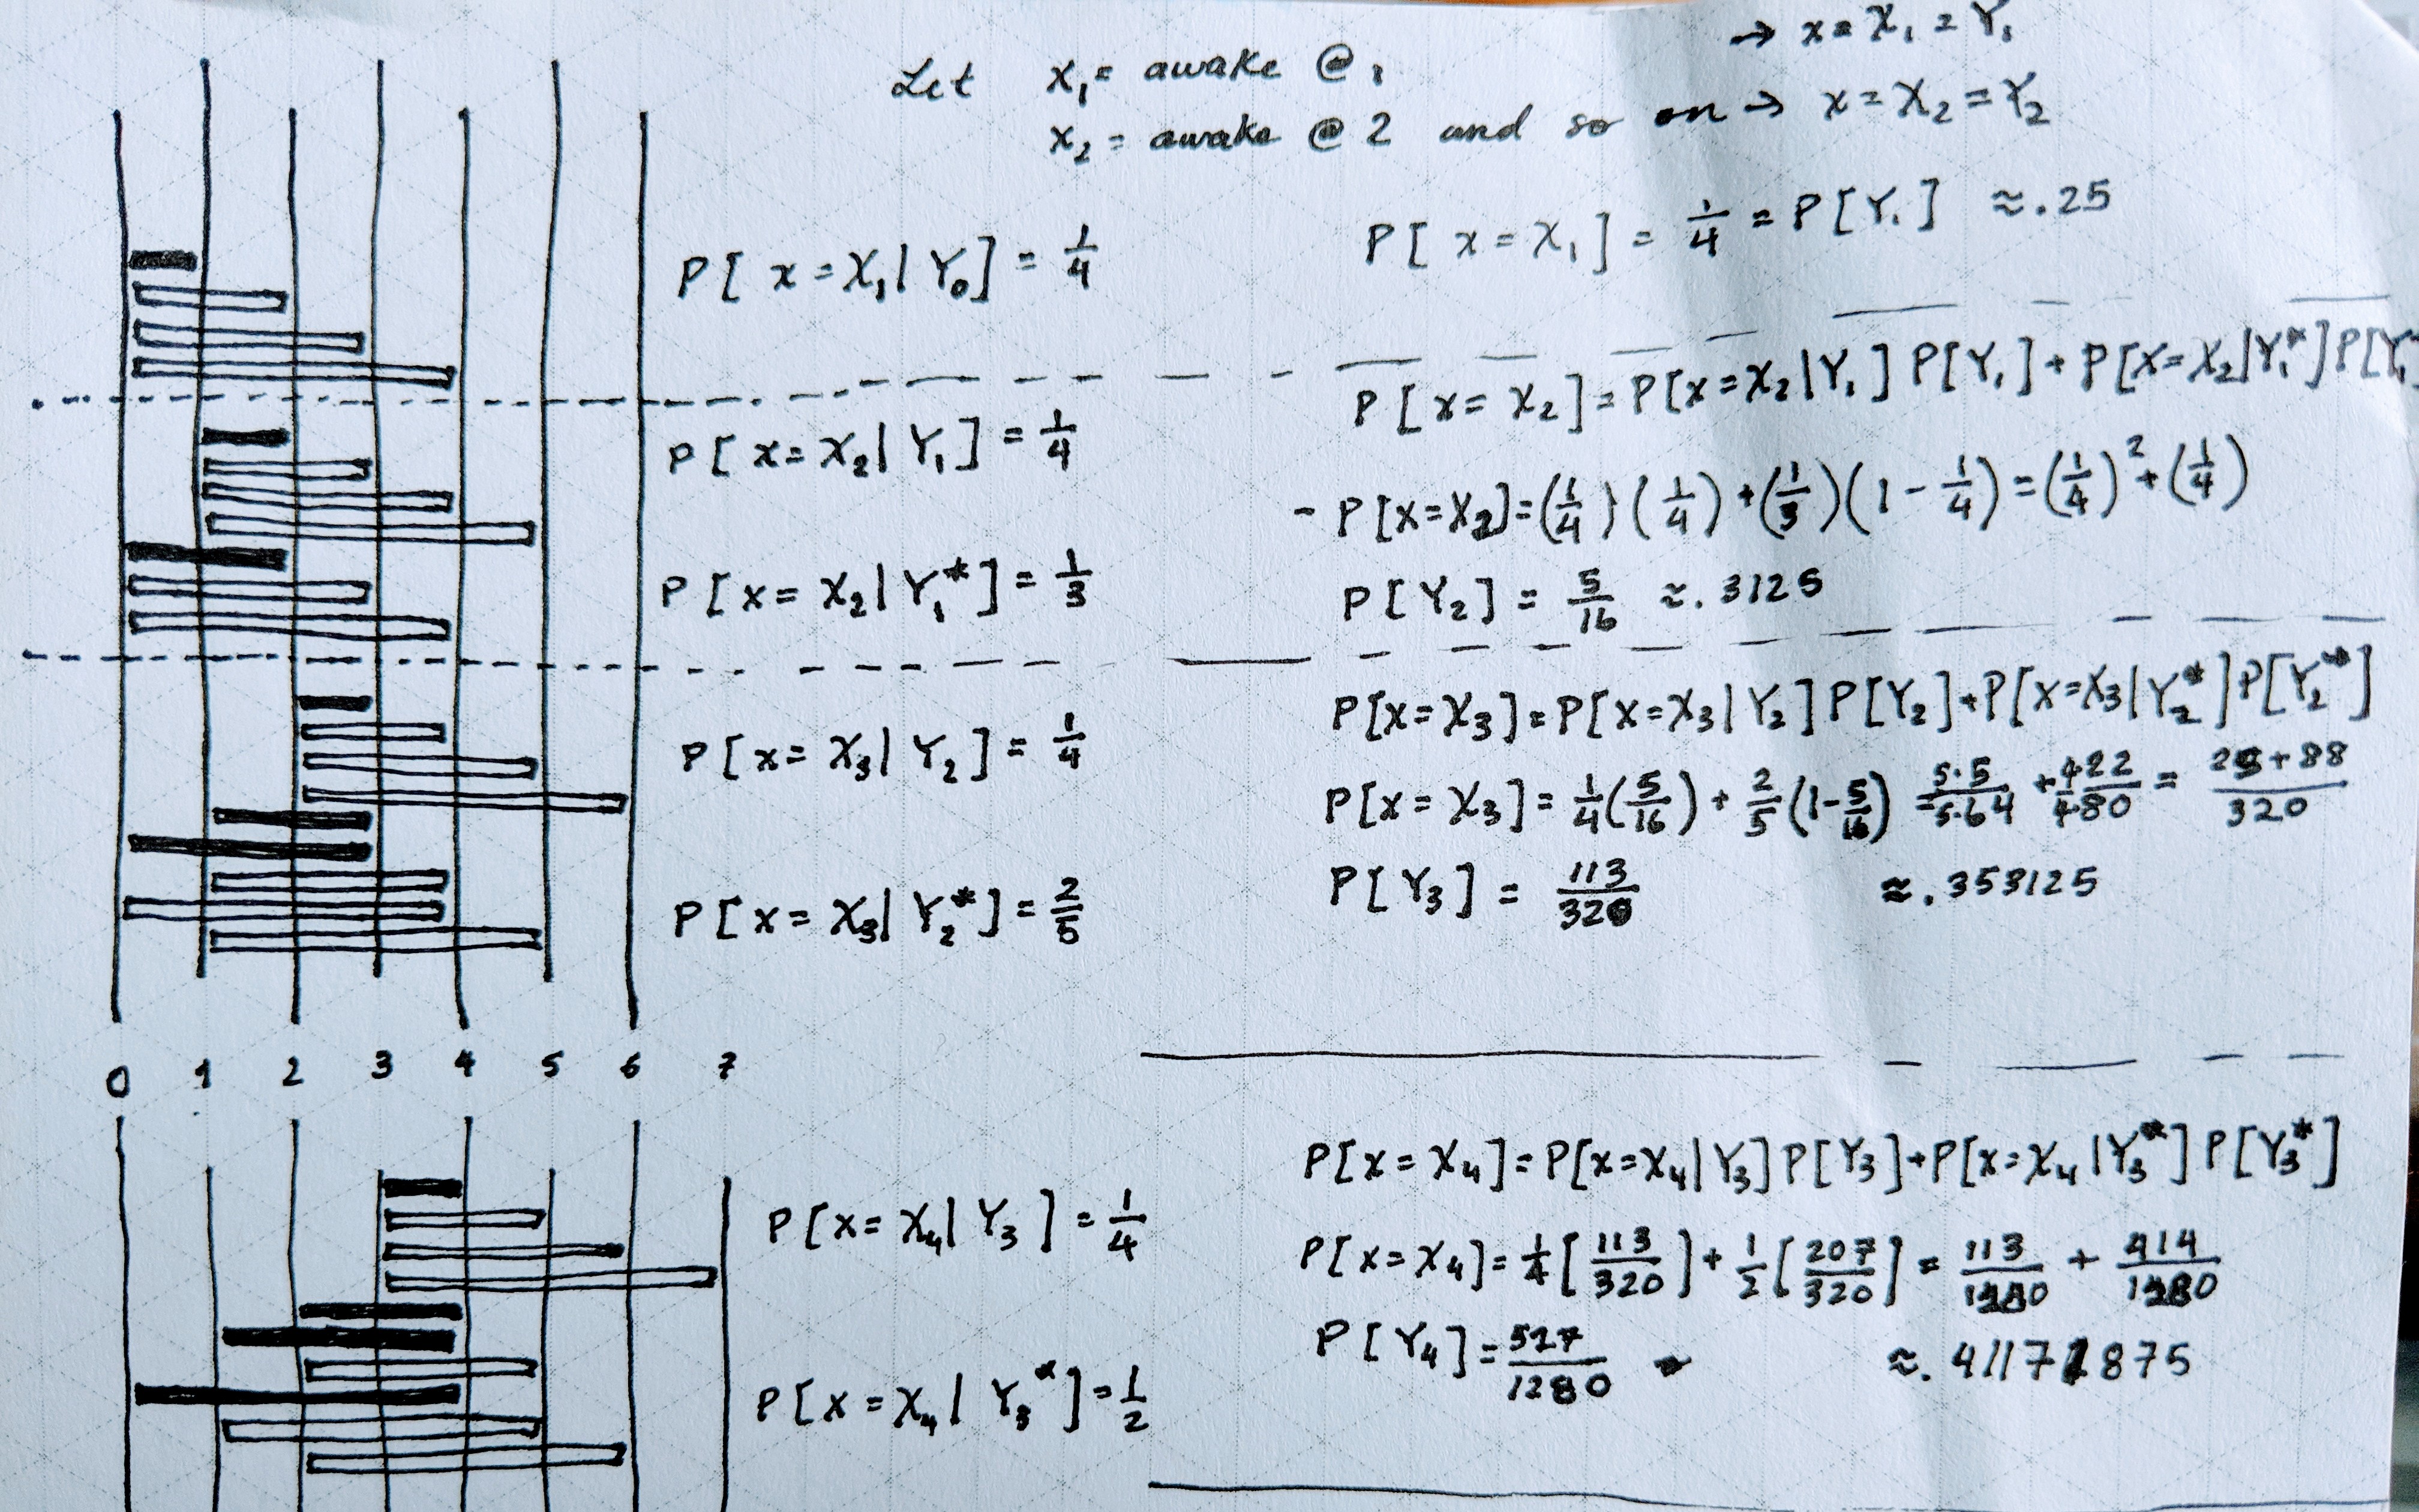 → x = X₁ = Y₁
Let x₁ = awake @ 1
x₂ = awake @ 2 and so on → x = X₂ = Y₂
P[x = X₁ | Y₀] = 1/4
P[x = X₁] = 1/4 = P[Y₁] ≈ .25
P[x = X₂] = P[x = X₂ | Y₁] P[Y₁] + P[x = X₂ | Y₁*] P[Y₁
P[x = X₂ | Y₁] = 1/4
- P[x = X₂] = (1/4)(1/4) + (1/3)(1 - 1/4) = (1/4)² + (1/4)
P[x = X₂ | Y₁*] = 1/3
P[Y₂] = 5/16 ≈ .3125
P[x = X₃] = P[x = X₃ | Y₂] P[Y₂] + P[x = X₃ | Y₂*] P[Y₂*]
P[x = X₃ | Y₂] = 1/4
P[x = X₃] = 1/4(5/16) + 2/5(1 - 5/16) = 5·5/5·64 + 4·22/4·80 = 25 + 88/320
P[x = X₃ | Y₂*] = 2/5
P[Y₃] = 113/320 ≈ .353125
0 1 2 3 4 5 6 7
P[x = X₄] = P[x = X₄ | Y₃] P[Y₃] + P[x = X₄ | Y₃*] P[Y₃*]
P[x = X₄ | Y₃] = 1/4
P[x = X₄] = 1/4[113/320] + 1/2[207/320] = 113/1280 + 414/1280
P[Y₄] = 527/1280 ≈ .41171875
P[x = X₄ | Y₃*] = 1/2